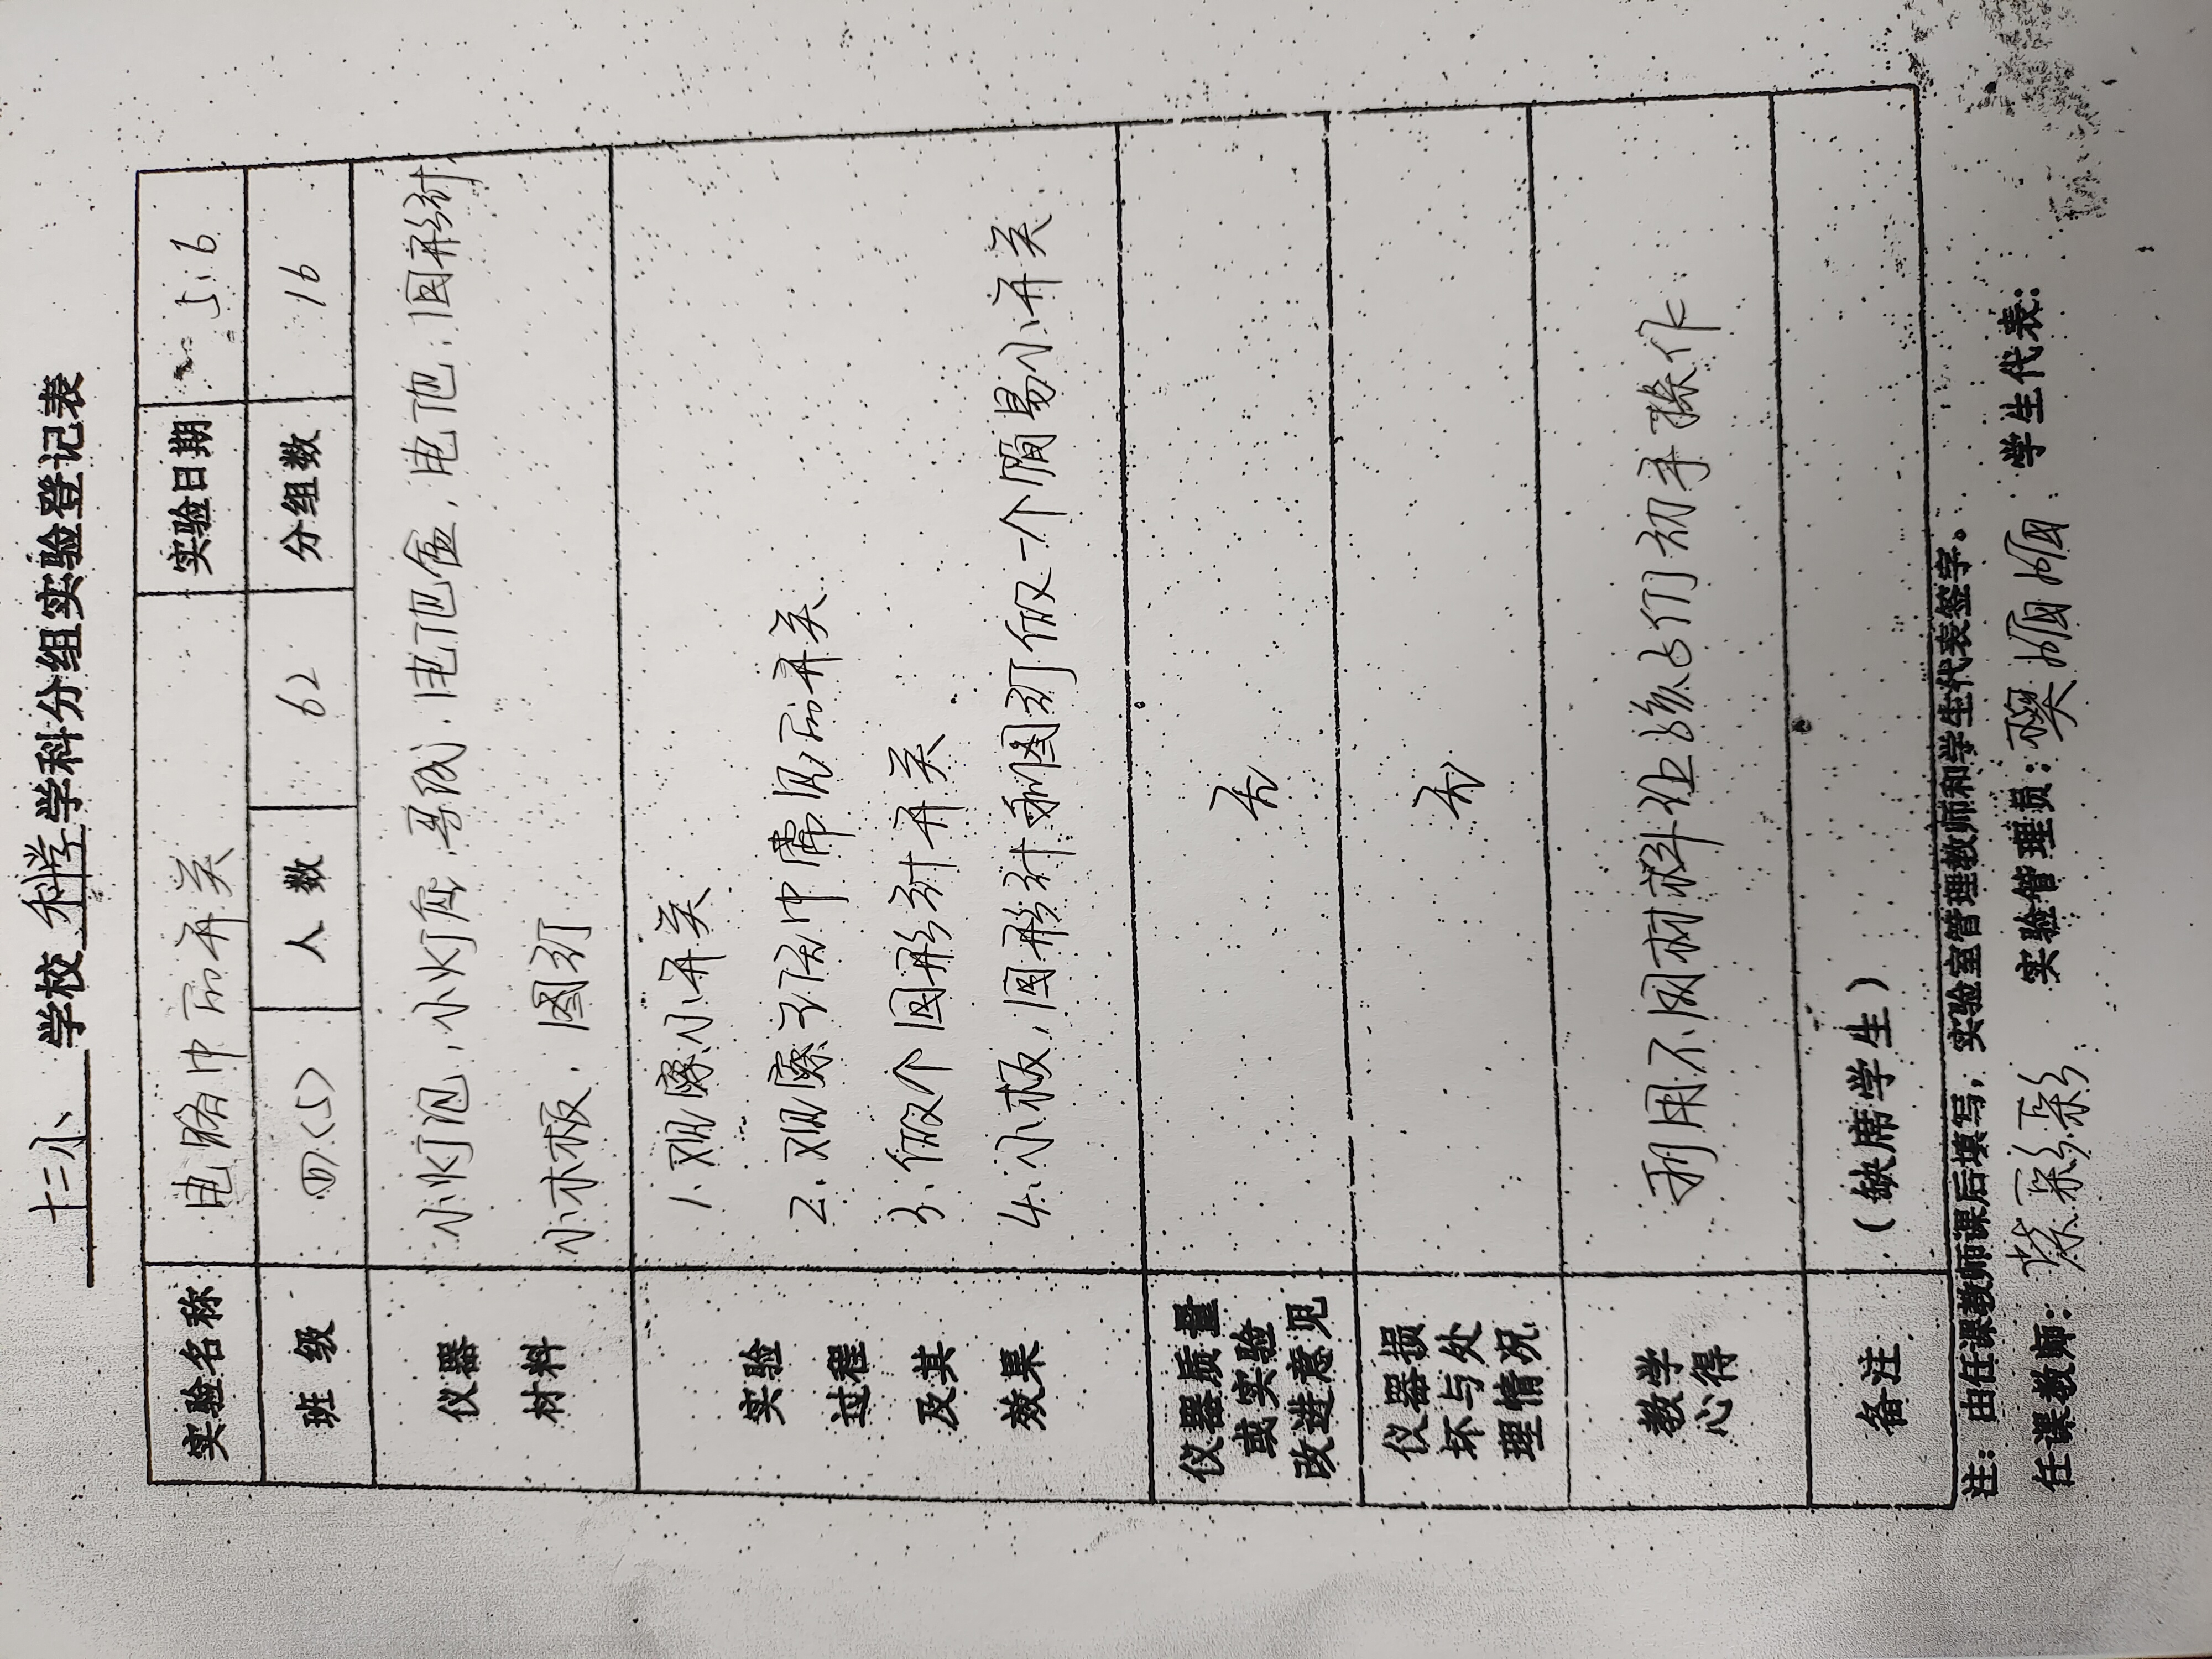 十二小 学校 科学 学科分组实验登记表
实验名称 电路中的开关 实验日期 5.6
班级 四(5) 人数 62 分组数 16
仪器材料 小灯泡、小灯座、导线、电池盒、电池、回形针
小木板、图钉
实验过程及其效果 1.观察小开关
2.观察生活中常见的开关
3.做个回形针开关
4.小木板、回形针和图钉做一个简易小开关
仪器质量或实验改进意见 无
仪器损坏与处理情况 无
教学心得 利用不同材料让孩子们动手操作.
备注 (缺席学生)
注:由任课教师课后填写;实验室管理教师和学生代表签字。
任课教师: 实验管理员: 学生代表: